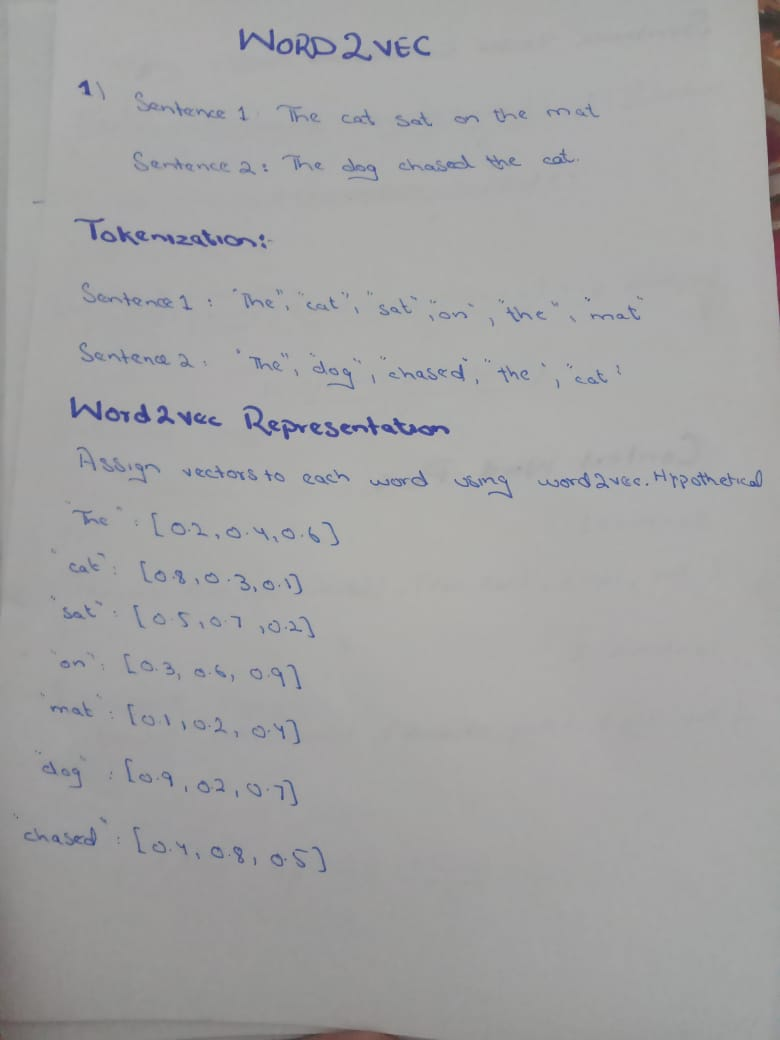 WORD2VEC
1) Sentence 1. The cat sat on the mat
Sentence 2: The dog chased the cat.
Tokenization:-
Sentence 1 : "The", "cat", "sat", "on", "the", "mat"
Sentence 2 : "The", "dog", "chased", "the", "cat"
Word2vec Representation
Assign vectors to each word using word2vec. Hypothetical
"The" : [0.2, 0.4, 0.6]
"cat" : [0.8, 0.3, 0.1]
"sat" : [0.5, 0.7, 0.2]
"on" : [0.3, 0.6, 0.9]
"mat" : [0.1, 0.2, 0.4]
"dog" : [0.9, 0.2, 0.7]
"chased" : [0.4, 0.8, 0.5]